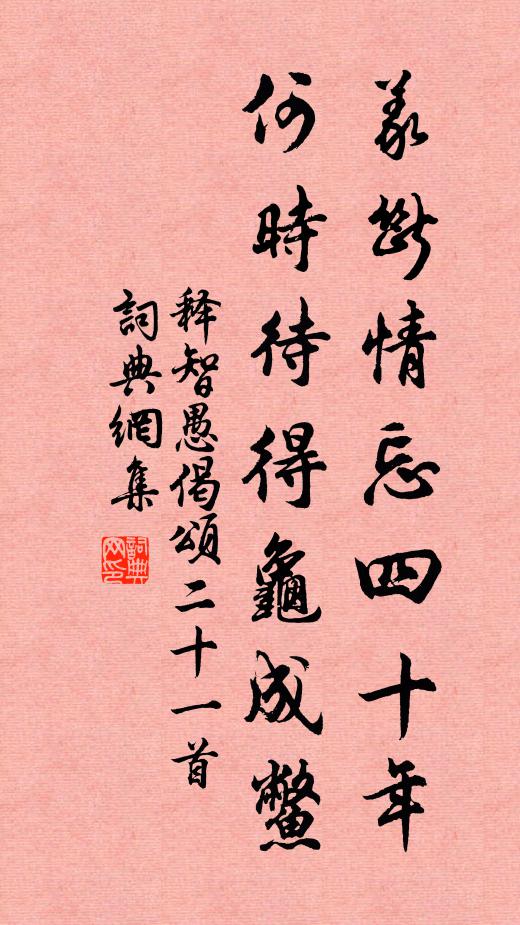 義斷情忘四十年
何時待得龜成鱉
释智愚偈頌二十一首
詞典網集
詞典网印